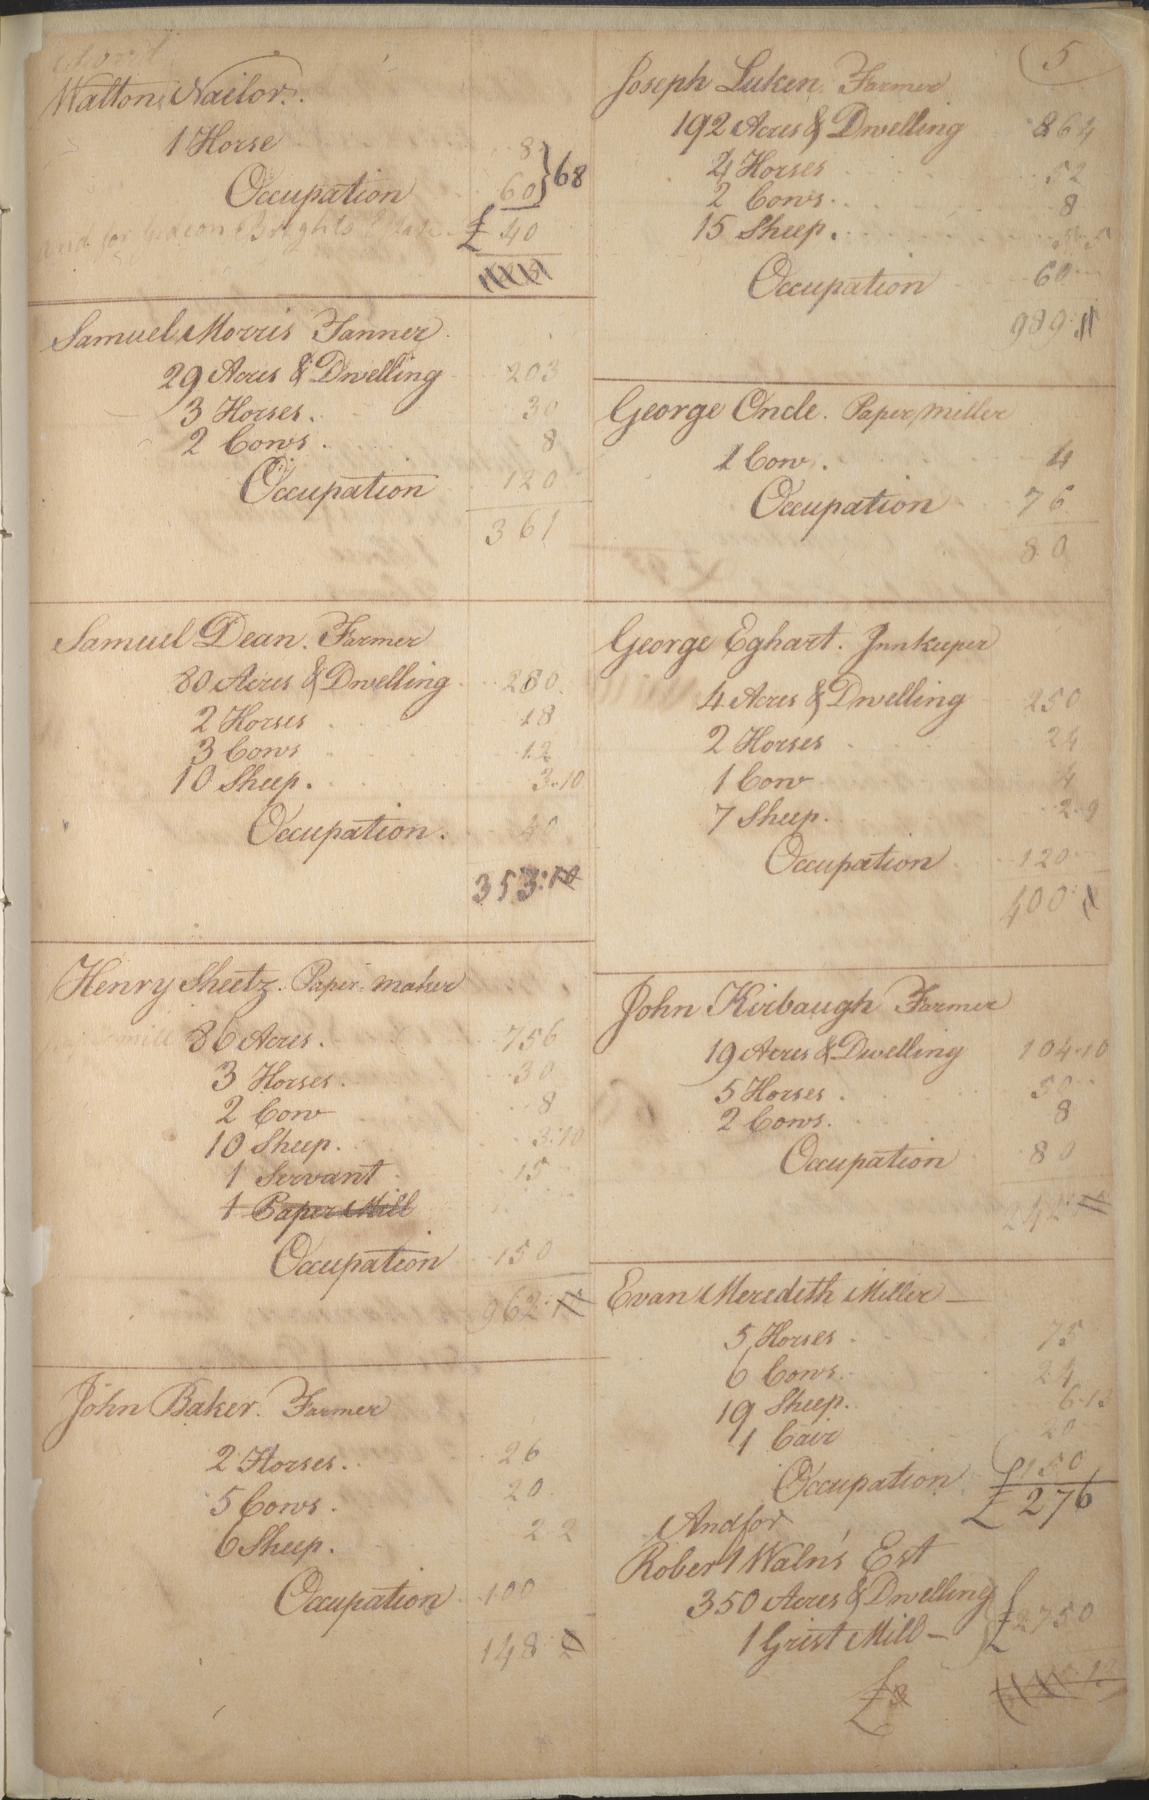 Walton Nailor.
1 Horse 8
Occupation 60 } 68
and for Gideon Brights Estate £ 40
Samuel Morris Tanner.
29 Acres & Dwelling 203
3 Horses. 30
2 Cows. 8
Occupation 120
361
Samuel Dean. Farmer
80 Acres & Dwelling 280
2 Horses 18
3 Cows 12
10 Sheep. 3.10
Occupation. 40
353:10
Henry Sheetz. Paper maker
86 Acres. 756
3 Horses. 30
2 Cow 8
10 Sheep. 3:10
1 Servant 15
1 Paper Mill
Occupation 150
962:10
John Baker. Farmer
2 Horses. 26
5 Cows. 20
6 Sheep. 2 2
Occupation 100
148
5
Joseph Luken. Farmer
192 Acres & Dwelling 864
4 Horses 52
2 Cows. 8
15 Sheep. 5.5
Occupation 60
989:
George Oncle. Paper miller
1 Cow. 4
Occupation 76
80
George Eghart. Innkeeper
4 Acres & Dwelling 250
2 Horses 24
1 Cow 4
7 Sheep. 2.9
Occupation 120
400:
John Kirbaugh Farmer
19 Acres & Dwelling 104.10
5 Horses. 50
2 Cows. 8
Occupation 80
242:
Evan Meredith Miller
5 Horses. 75
6 Cows. 24
19 Sheep. 6.13
1 Cair 20
Occupation £150
£ 276
And for
Robert Waln's Est
350 Acres & Dwelling
1 Grist Mill £2750